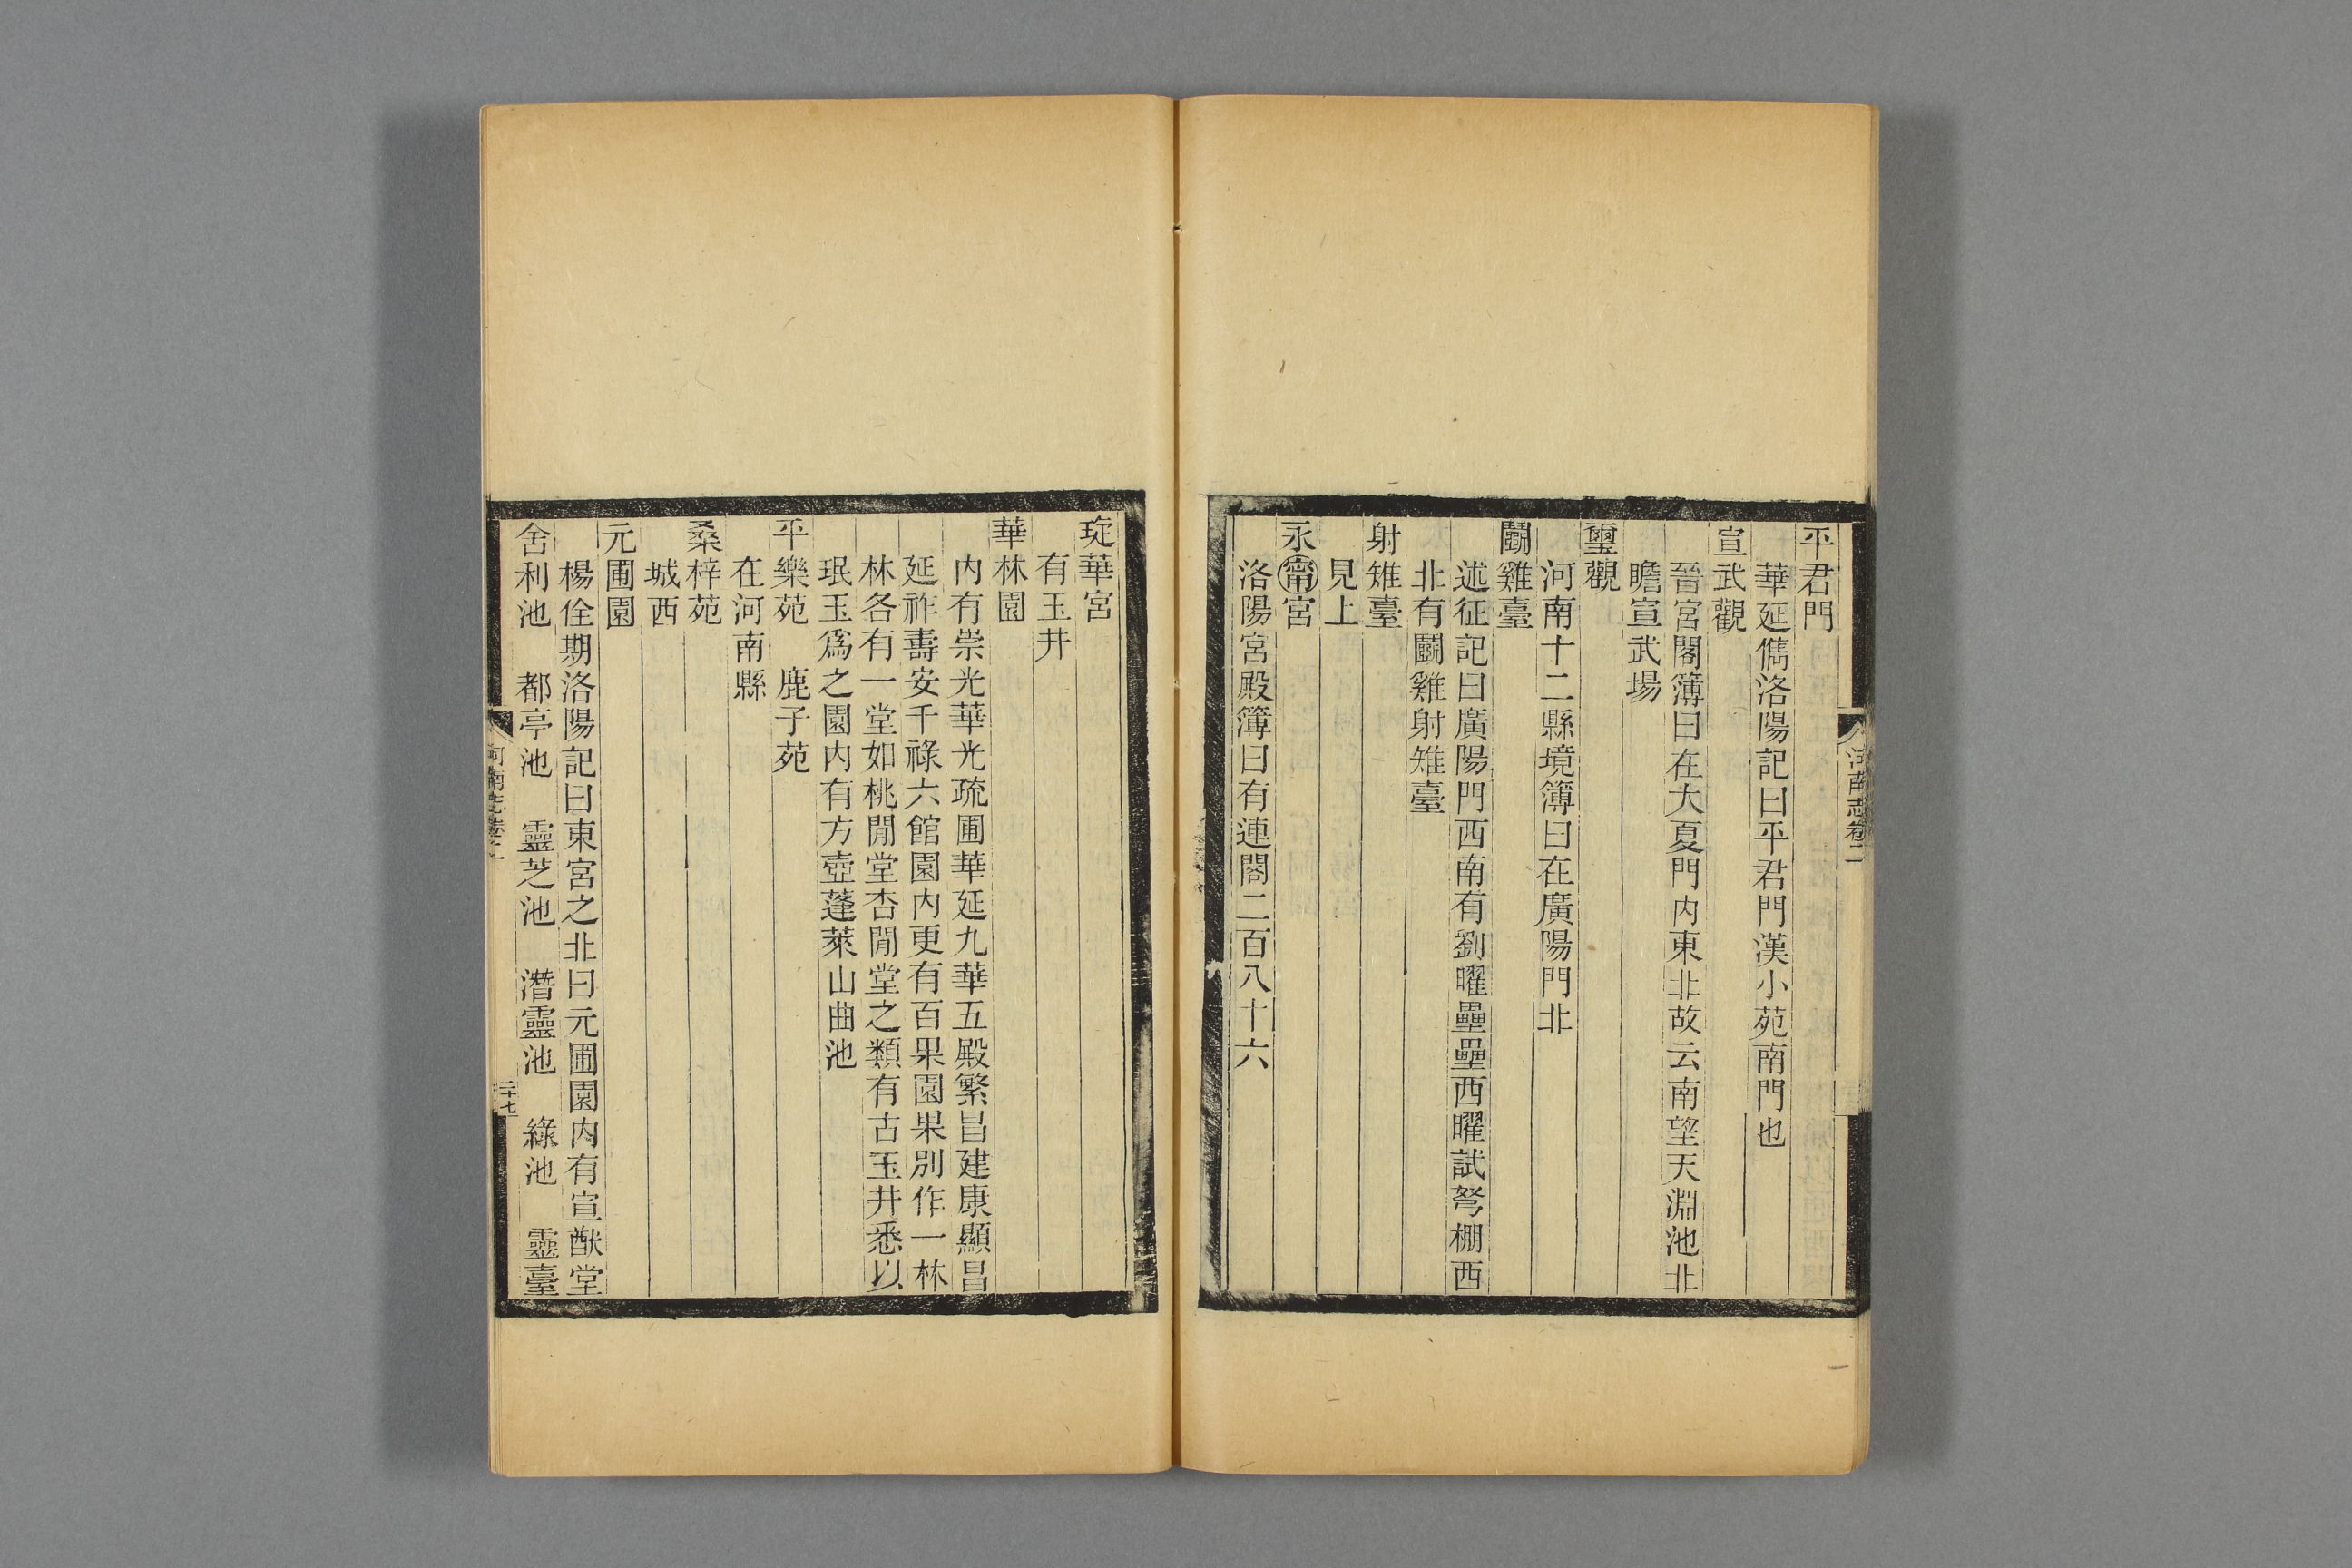 河南志卷二
平君門
華延儁洛陽記曰平君門漢小苑南門也
宣武觀
晉宮閣簿曰在大夏門内東北故云南望天淵池北
瞻宣武場
璽觀
河南十二縣境簿曰在廣陽門北
鬭雞臺
述征記曰廣陽門西南有劉曜壘壘西曜試弩棚西
北有鬭雞射雉臺
射雉臺
見上
永甯宮
洛陽宮殿簿曰有連閣二百八十六
琁華宮
有玉井
華林園
内有崇光華光疏圃華延九華五殿繁昌建康顯昌
延祚壽安千祿六館園内更有百果園果別作一林
林各有一堂如桃閒堂杏閒堂之類有古玉井悉以
珉玉爲之園内有方壺蓬萊山曲池
平樂苑　鹿子苑
在河南縣
桑梓苑
城西
元圃園
楊佺期洛陽記曰東宮之北曰元圃園内有宣猷堂
舍利池　都亭池　靈芝池　濳靈池　綠池　靈臺
河南志卷二
二十七